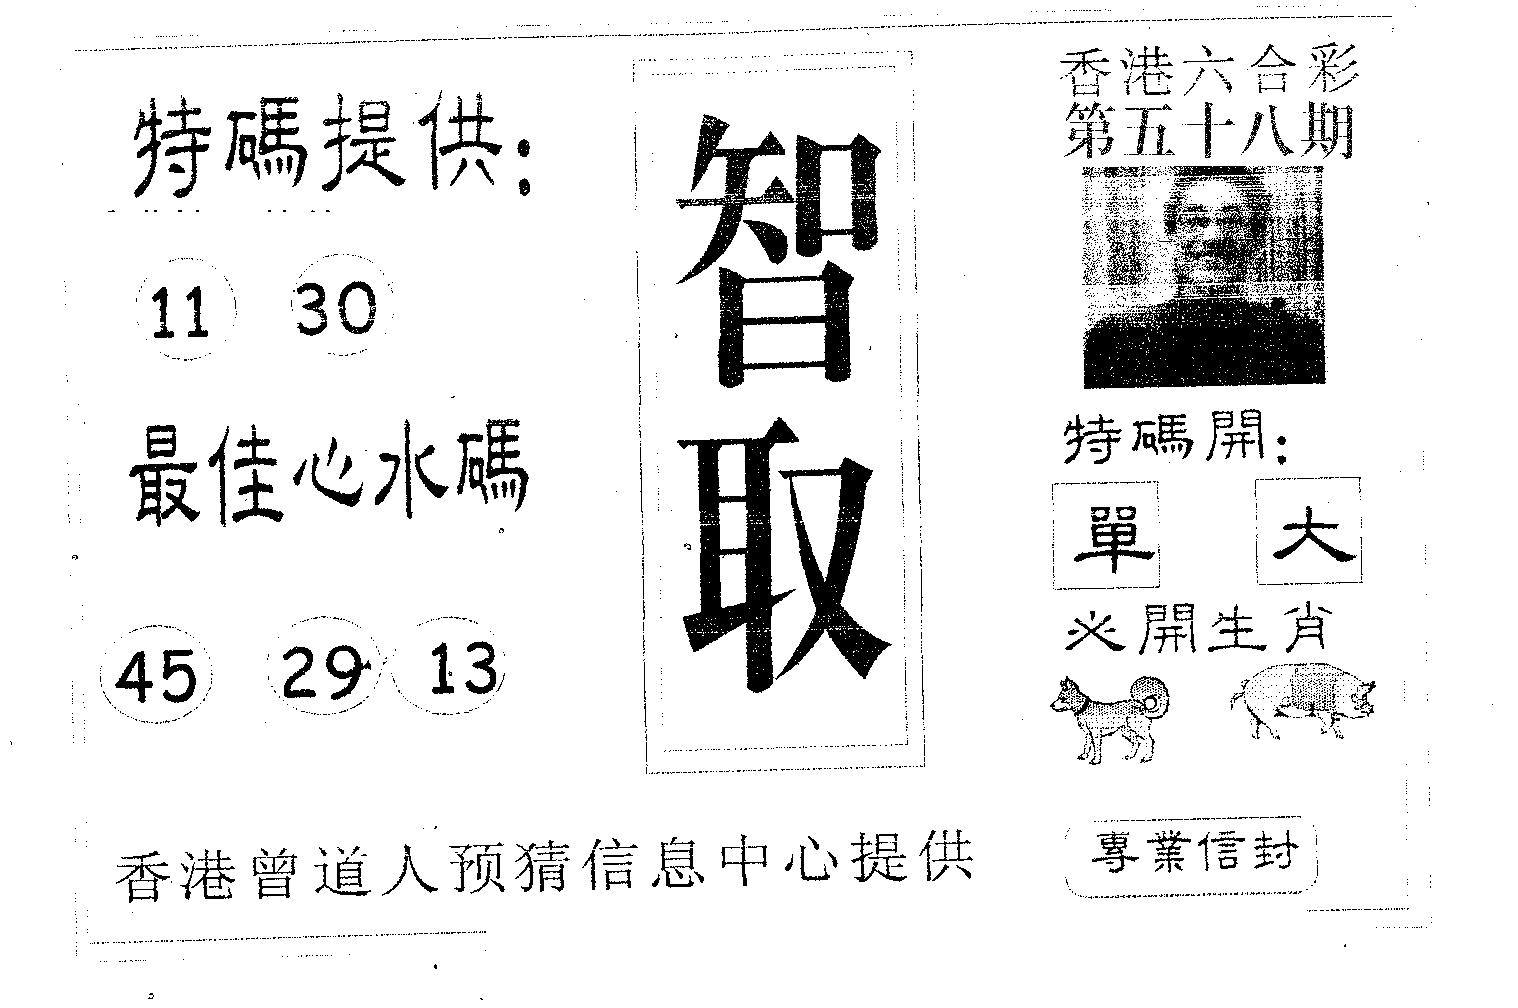 特碼提供:
11 30
最佳心水碼
45 29 13
智取
香港六合彩
第五十八期
特碼開:
單 大
必開生肖
香港曾道人预猜信息中心提供
專業信封